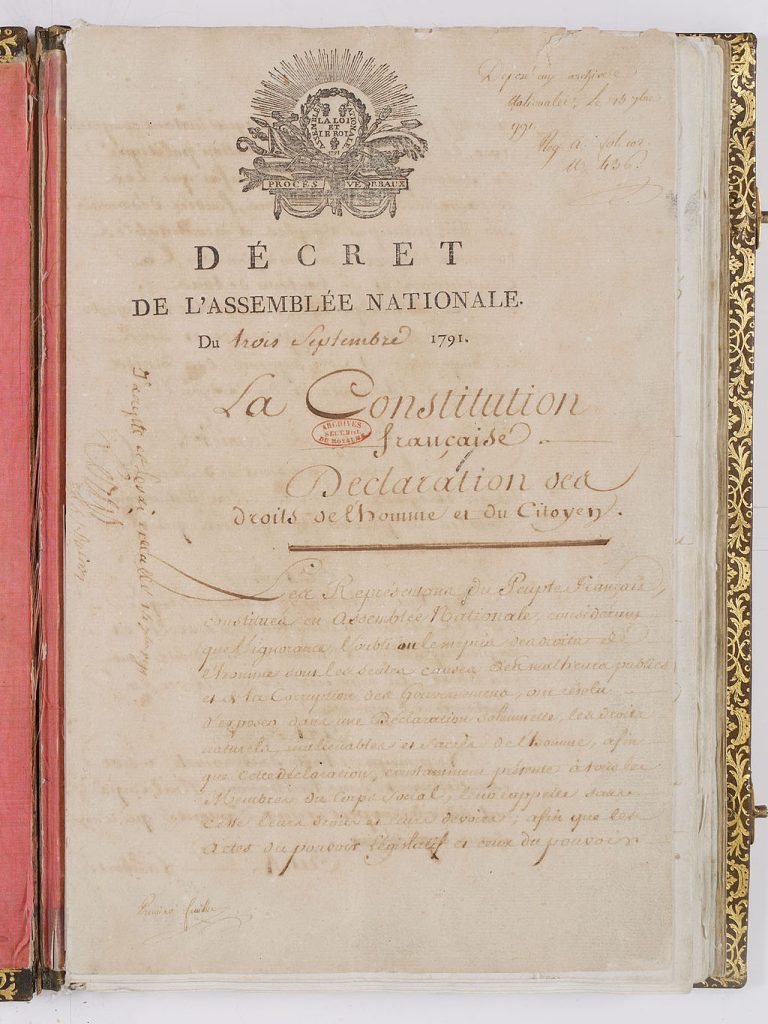 Déposé aux archives
nationales, le 15 7bre
1791.
Reg. A. fol. 101
N. 436.
ASSEMBLÉE NATIONALE
LA LOI
ET
LE ROI
PROCÈS VERBAUX
DÉCRET
DE L'ASSEMBLÉE NATIONALE.
Du trois Septembre 1791.
La Constitution
française.
ARCHIVES
SECT. HIST.
DU ROYAUME
Déclaration des
droits de l'homme et du Citoyen.
Les Représentans du Peuple Français,
constitués en Assemblée Nationale, considérant
que l'ignorance, l'oubli ou le mépris des droits de
l'homme sont les seules causes des malheurs publics
et de la Corruption des Gouvernemens, ont résolu
d'exposer dans une Déclaration solemnelle, les droits
naturels, inaliénables et sacrés de l'homme, afin
que cette déclaration, constamment présente à tous les
Membres du Corps Social, leur rappelle sans
cesse leurs droits et leurs devoirs ; afin que les
Actes du pouvoir législatif et ceux du pouvoir
J'accepte et ferai exécuter 14 7bre 1791
Louis
Premier feuillet